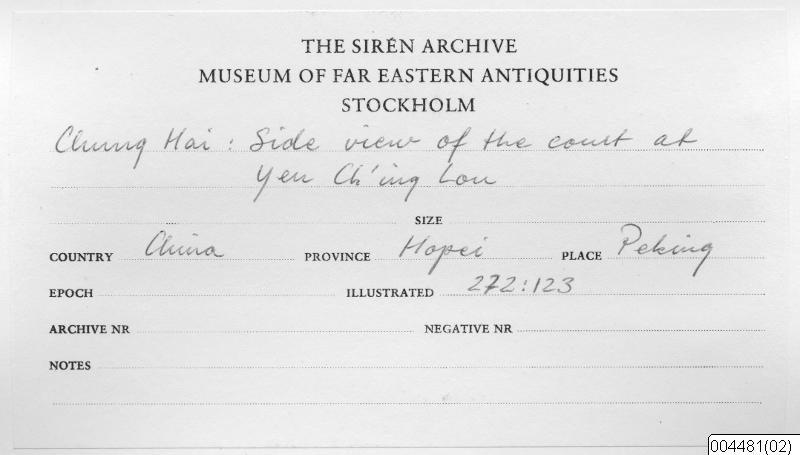 THE SIRÉN ARCHIVE
MUSEUM OF FAR EASTERN ANTIQUITIES
STOCKHOLM
Chung Hai : Side view of the court at
Yen Ch'ing Lou
SIZE
COUNTRY China PROVINCE Hopei PLACE Peking
EPOCH ILLUSTRATED 272:123
ARCHIVE NR NEGATIVE NR
NOTES
004481(02)